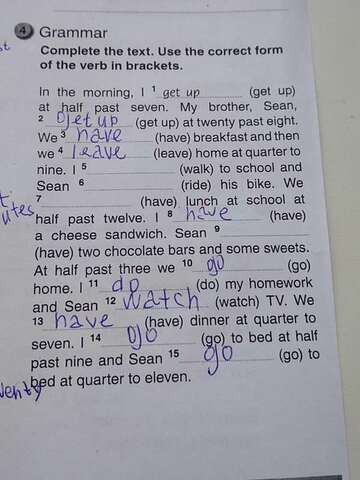 4 Grammar
Complete the text. Use the correct form
of the verb in brackets.
In the morning, I 1 get up (get up)
at half past seven. My brother, Sean,
2 get up (get up) at twenty past eight.
We 3 have (have) breakfast and then
we 4 leave (leave) home at quarter to
nine. I 5 (walk) to school and
Sean 6 (ride) his bike. We
7 (have) lunch at school at
half past twelve. I 8 have (have)
a cheese sandwich. Sean 9
(have) two chocolate bars and some sweets.
At half past three we 10 go (go)
home. I 11 do (do) my homework
and Sean 12 watch (watch) TV. We
13 have (have) dinner at quarter to
seven. I 14 go (go) to bed at half
past nine and Sean 15 go (go) to
bed at quarter to eleven.